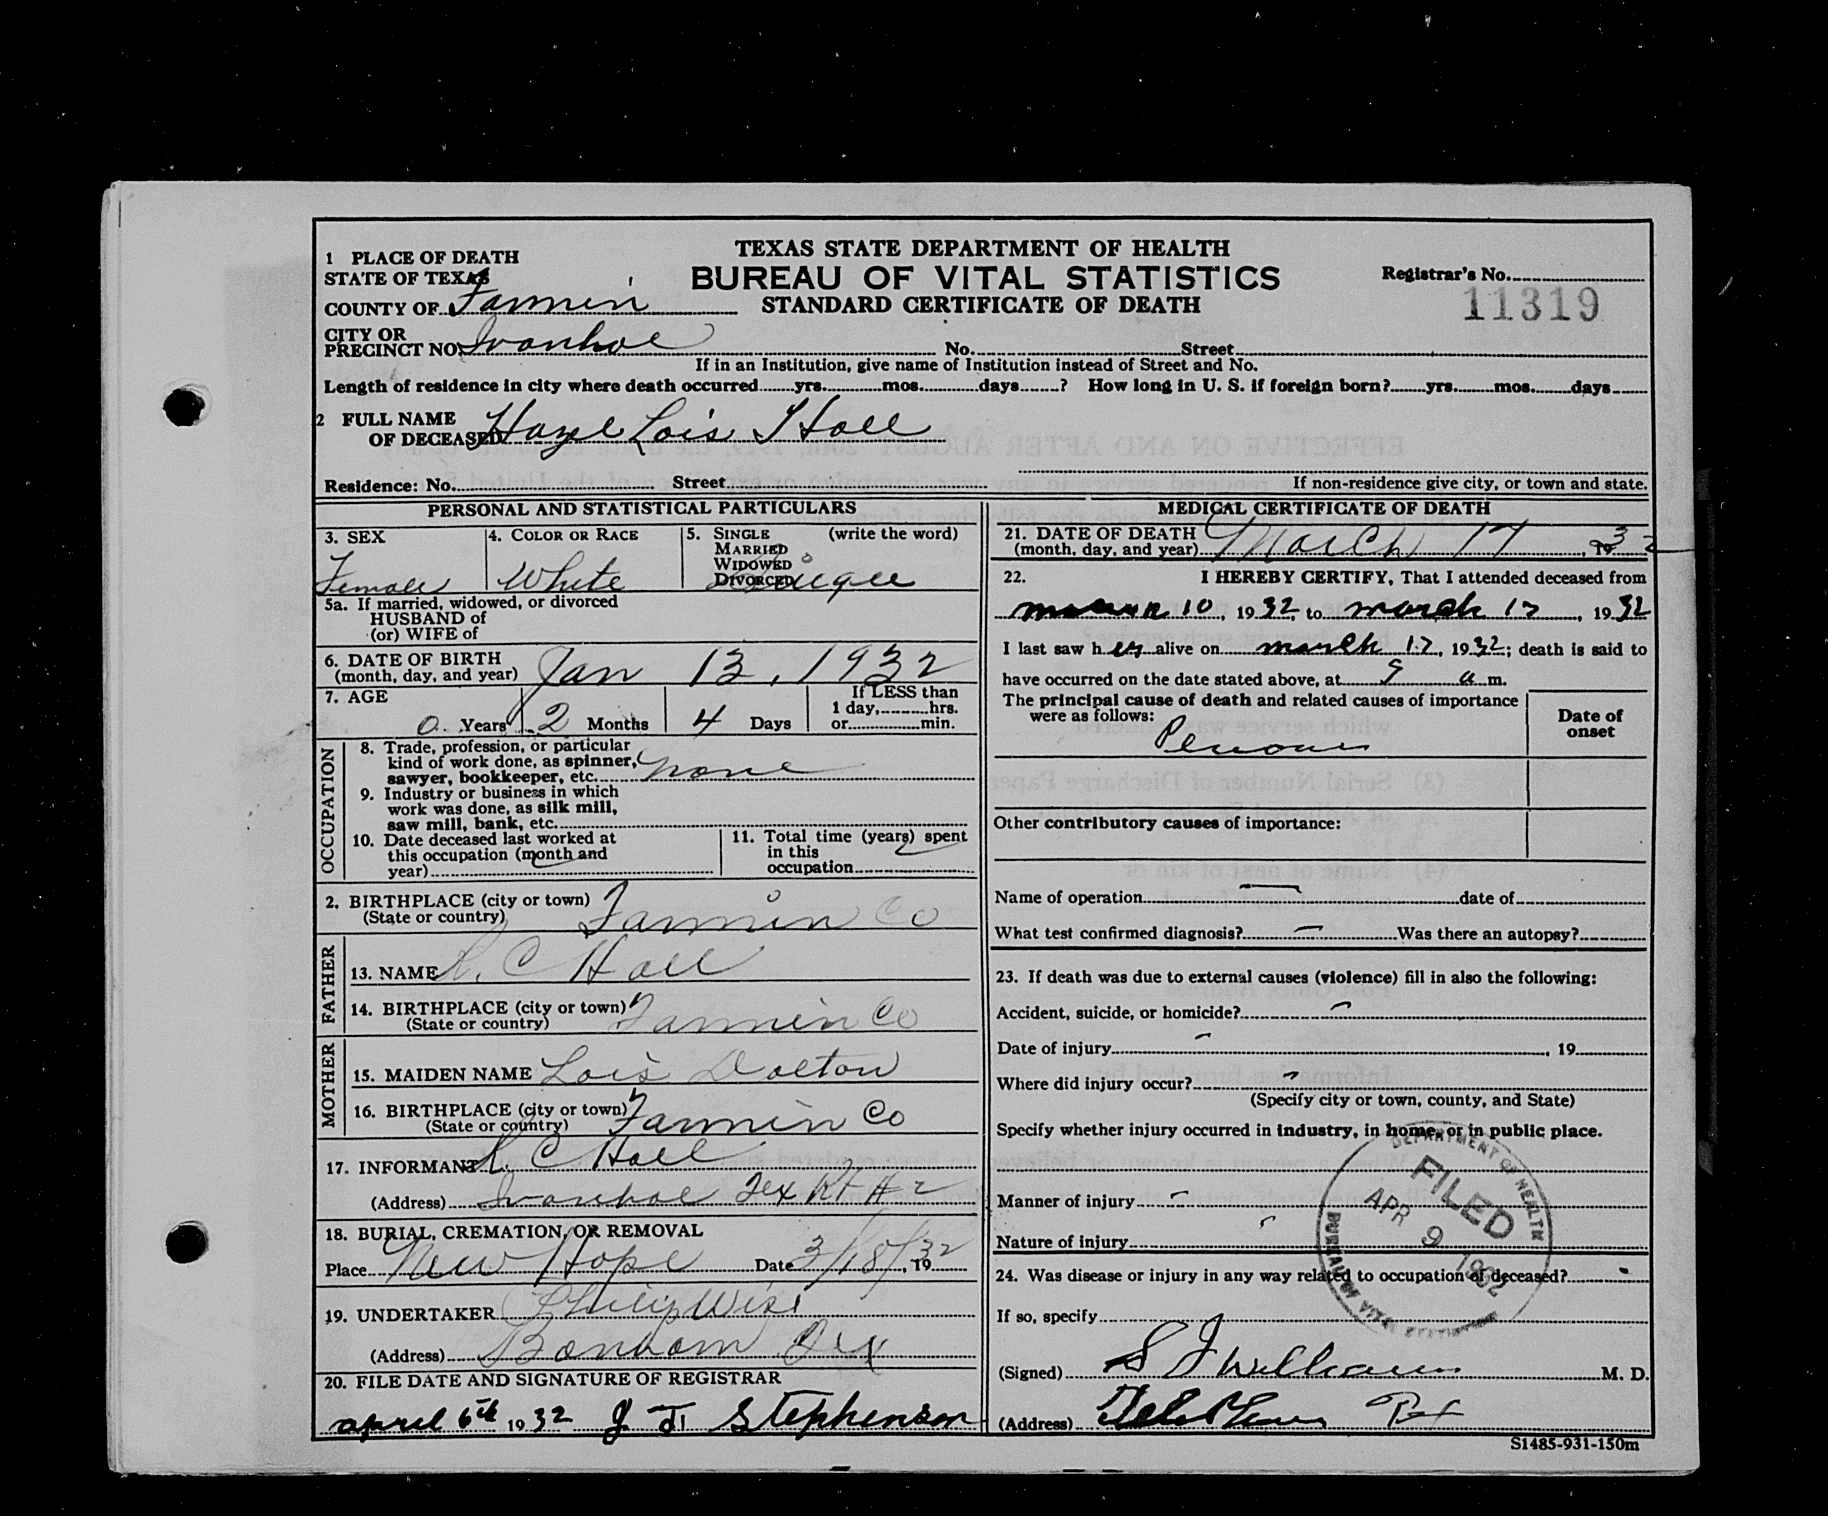 1 PLACE OF DEATH
STATE OF TEXAS
COUNTY OF Fannin
CITY OR
PRECINCT NO. Ivanhoe No. Street
TEXAS STATE DEPARTMENT OF HEALTH
BUREAU OF VITAL STATISTICS
STANDARD CERTIFICATE OF DEATH
Registrar's No.
11319
If in an Institution, give name of Institution instead of Street and No.
Length of residence in city where death occurred yrs. mos. days ? How long in U. S. if foreign born? yrs. mos. days
2 FULL NAME
OF DECEASED Hazel Lois Hall
Residence: No. Street
If non-residence give city, or town and state.
PERSONAL AND STATISTICAL PARTICULARS
3. SEX
Female
4. COLOR OR RACE
White
5. SINGLE (write the word)
MARRIED
WIDOWED
DIVORCED Single
5a. If married, widowed, or divorced
HUSBAND of
(or) WIFE of
6. DATE OF BIRTH
(month, day, and year) Jan 13, 1932
7. AGE
0 Years 2 Months 4 Days
If LESS than
1 day, hrs.
or min.
OCCUPATION
8. Trade, profession, or particular
kind of work done, as spinner,
sawyer, bookkeeper, etc. none
9. Industry or business in which
work was done, as silk mill,
saw mill, bank, etc.
10. Date deceased last worked at
this occupation (month and
year)
11. Total time (years) spent
in this
occupation
2. BIRTHPLACE (city or town)
(State or country) Fannin Co
FATHER
13. NAME R. C Hall
14. BIRTHPLACE (city or town)
(State or country) Fannin Co
MOTHER
15. MAIDEN NAME Lois Dalton
16. BIRTHPLACE (city or town)
(State or country) Fannin Co
17. INFORMANT R. C Hall
(Address) Ivanhoe Tex Rt # 2
18. BURIAL, CREMATION, OR REMOVAL
Place New Hope Date 3/18/, 1932
19. UNDERTAKER Wise
(Address) Bonham Tex
20. FILE DATE AND SIGNATURE OF REGISTRAR
april 6th 1932 J T Stephenson
MEDICAL CERTIFICATE OF DEATH
21. DATE OF DEATH
(month, day, and year) March 17, 1932
22. I HEREBY CERTIFY, That I attended deceased from
march 10, 1932, to march 17, 1932
I last saw her alive on march 17, 1932; death is said to
have occurred on the date stated above, at 9 a m.
The principal cause of death and related causes of importance
were as follows:
Date of
onset
Other contributory causes of importance:
Name of operation date of
What test confirmed diagnosis? Was there an autopsy?
23. If death was due to external causes (violence) fill in also the following:
Accident, suicide, or homicide?
Date of injury , 19
Where did injury occur?
(Specify city or town, county, and State)
Specify whether injury occurred in industry, in home, or in public place.
Manner of injury
Nature of injury
DEPARTMENT OF HEALTH
FILED
APR 9 1932
BUREAU OF VITAL STATISTICS
24. Was disease or injury in any way related to occupation of deceased?
If so, specify
(Signed) S J Williams M. D.
(Address)
S1485-931-150m